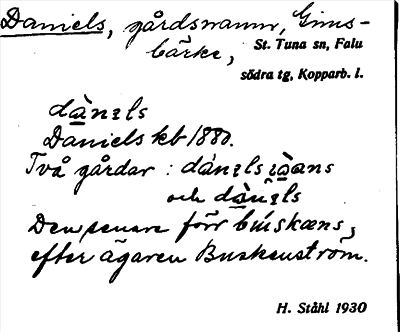 Daniels, gårdsnamn, Gims-
bärke, St. Tuna sn, Falu
södra tg, Kopparb. l.
dànɛls
Daniels kb 1880.
Två gårdar : dánɛls
och dànɛls
Den senare förr búskæns,
efter ägaren Buskenström.
H. Ståhl 1930